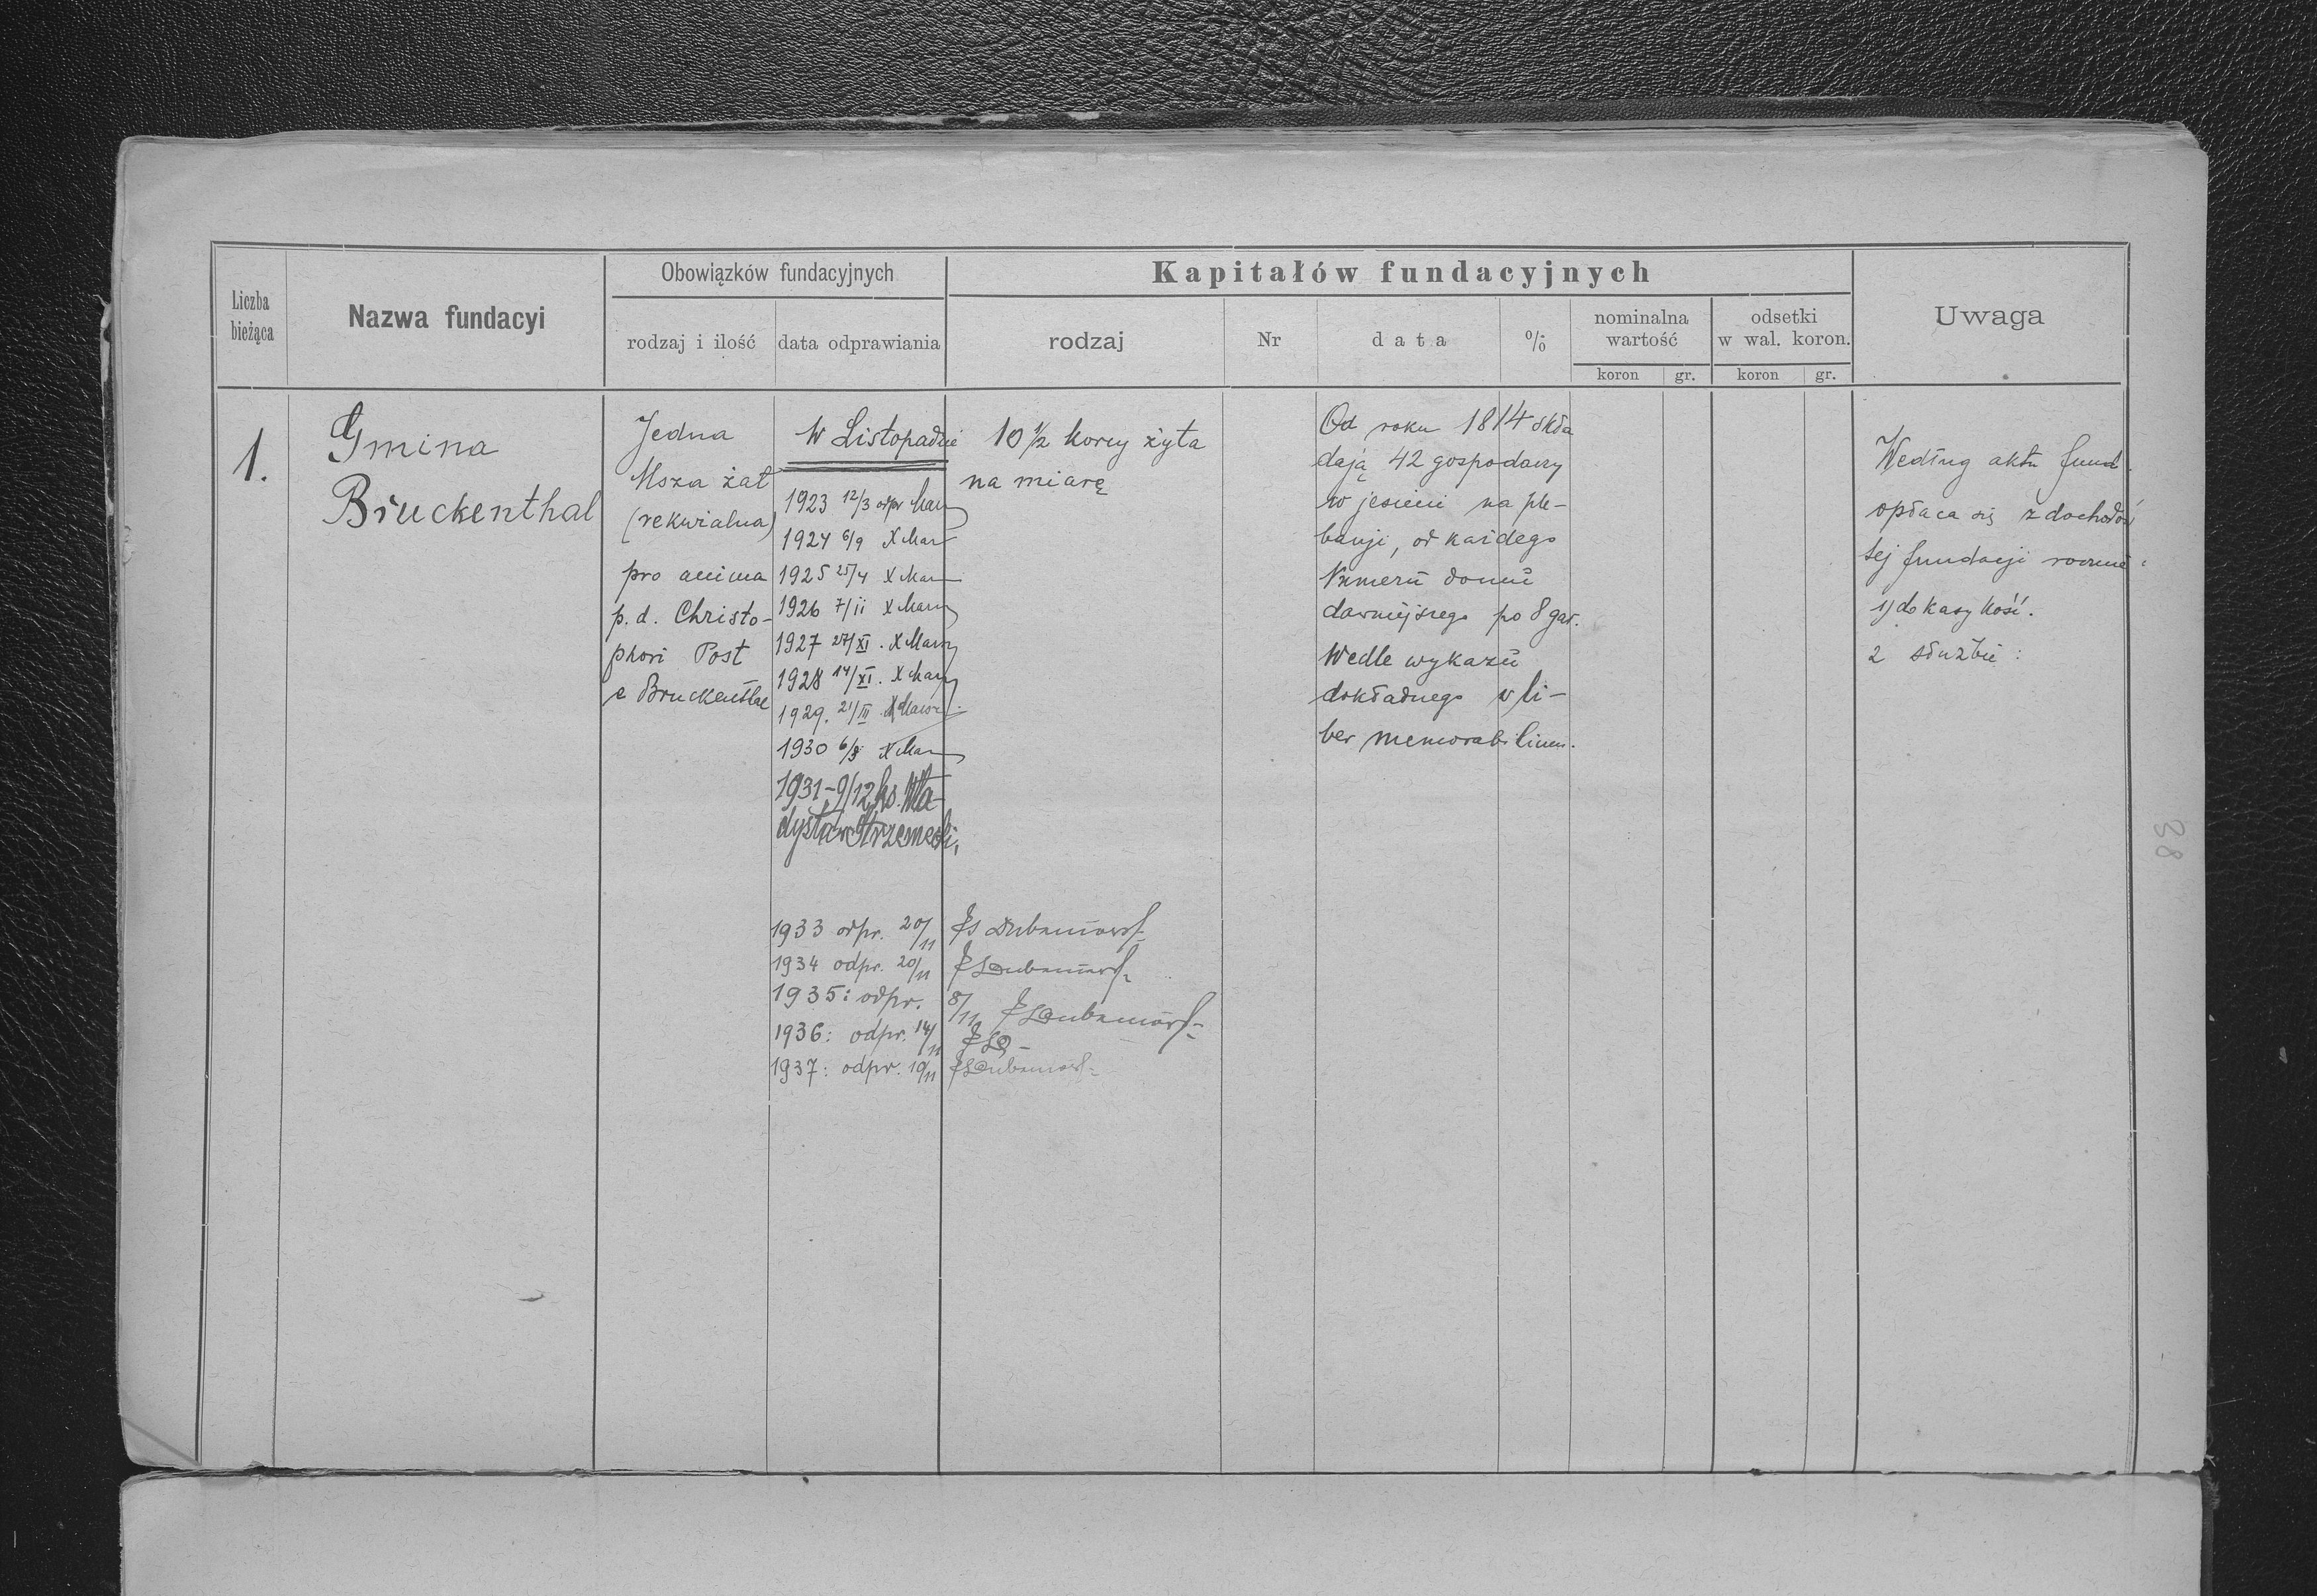 Liczba bieżąca
Nazwa fundacyi
Obowiązków fundacyjnych
rodzaj i ilość
data odprawiania
Kapitałów fundacyjnych
rodzaj
Nr
data
%
nominalna wartość
koron
gr.
odsetki w wal. koron.
koron
gr.
Uwaga
1.
Gmina
Bruckenthal
Jedna
Msza żał
(rekwialna)
pro anima
p. d. Christo-
phori Post
e Bruckenthal
W Listopadzie
1923 12/3 odpr
1924 6/9
1925 25/4
1926 7/ii
1927 27/XI.
1928 14/XI.
1929. 21/III
1930 6/8
1931-9/12 ks. Wła-
dysław Strzemecki,
1933 odpr. 20/11
1934 odpr. 20/11
1935: odpr. 8/11
1936: odpr. 14/11
1937: odpr. 19/11
10 1/2 korcy żyta
na miarę
Od roku 1814 skła
dają 42 gospodarzy
w jesieni na ple-
banji, od każdego
Numeru domu
dawniejszego po 8 gar.
Wedle wykazu
dokładnego w li-
ber memorabilium.
Według aktu fund.
opłaca się z dochodów
tej fundacji rocznie:
1) do kasy kość.
2 służbie:
38